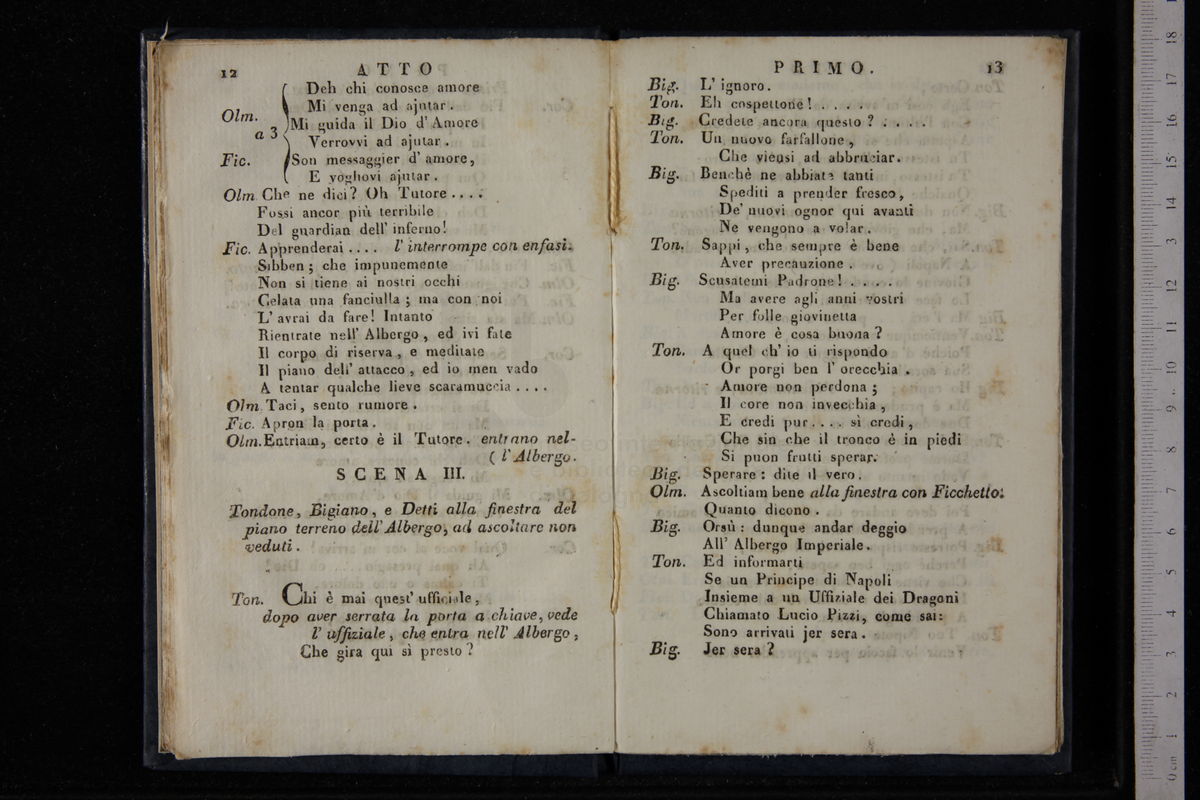 12 ATTO
Deh chi conosce amore
Mi venga ad ajutar.
Olm.
Mi guida il Dio d' Amore
a 3
Verrovvi ad ajutar.
Fic. Son messaggier d' amore,
E voghovi ajutar.
Olm. Che ne dici? Oh Tutore....
Fossi ancor più terribile
Del guardian dell' inferno!
Fic. Apprenderai.... l' interrompe con enfasi.
Sibben; che impunemente
Non si tiene ai nostri occhi
Celata una fanciulla; ma con noi
L' avrai da fare! Intanto
Rientrate nell' Albergo, ed ivi fate
Il corpo di riserva, e meditate
Il piano dell' attacco, ed io men vado
A tentar qualche lieve scaramuccia....
Olm. Taci, sento rumore.
Fic. Apron la porta.
Olm. Entriam, certo è il Tutore. entrano nel-
( l' Albergo.
SCENA III.
Tondone, Bigiano, e Detti alla finestra del
piano terreno dell' Albergo, ad ascoltare non
veduti.
Ton. Chi è mai quest' ufficiale,
dopo aver serrata la porta a chiave, vede
l' uffiziale, che entra nell' Albergo,
Che gira qui sì presto?
PRIMO. 13
Big. L' ignoro.
Ton. Eh cospettone!....
Big. Credete ancora questo?....
Ton. Un nuovo farfallone,
Che viensi ad abbruciar.
Big. Benchè ne abbiate tanti
Spediti a prender fresco,
De' nuovi ognor qui avanti
Ne vengono a volar.
Ton. Sappi, che sempre è bene
Aver precauzione.
Big. Scusatemi Padrone!....
Ma avere agli anni vostri
Per folle giovinetta
Amore è cosa buona?
Ton. A quel ch' io ti rispondo
Or porgi ben l' orecchia.
Amore non perdona;
Il core non invecchia,
E credi pur.... sì credi,
Che sin che il tronco è in piedi
Si puon frutti sperar.
Big. Sperare: dite il vero.
Olm. Ascoltiam bene alla finestra con Ficchetto.
Quanto dicono.
Big. Orsù: dunque andar deggio
All' Albergo Imperiale.
Ton. Ed informarti
Se un Principe di Napoli
Insieme a un Uffiziale dei Dragoni
Chiamato Lucio Pizzi, come sai:
Sono arrivati jer sera.
Big. Jer sera?